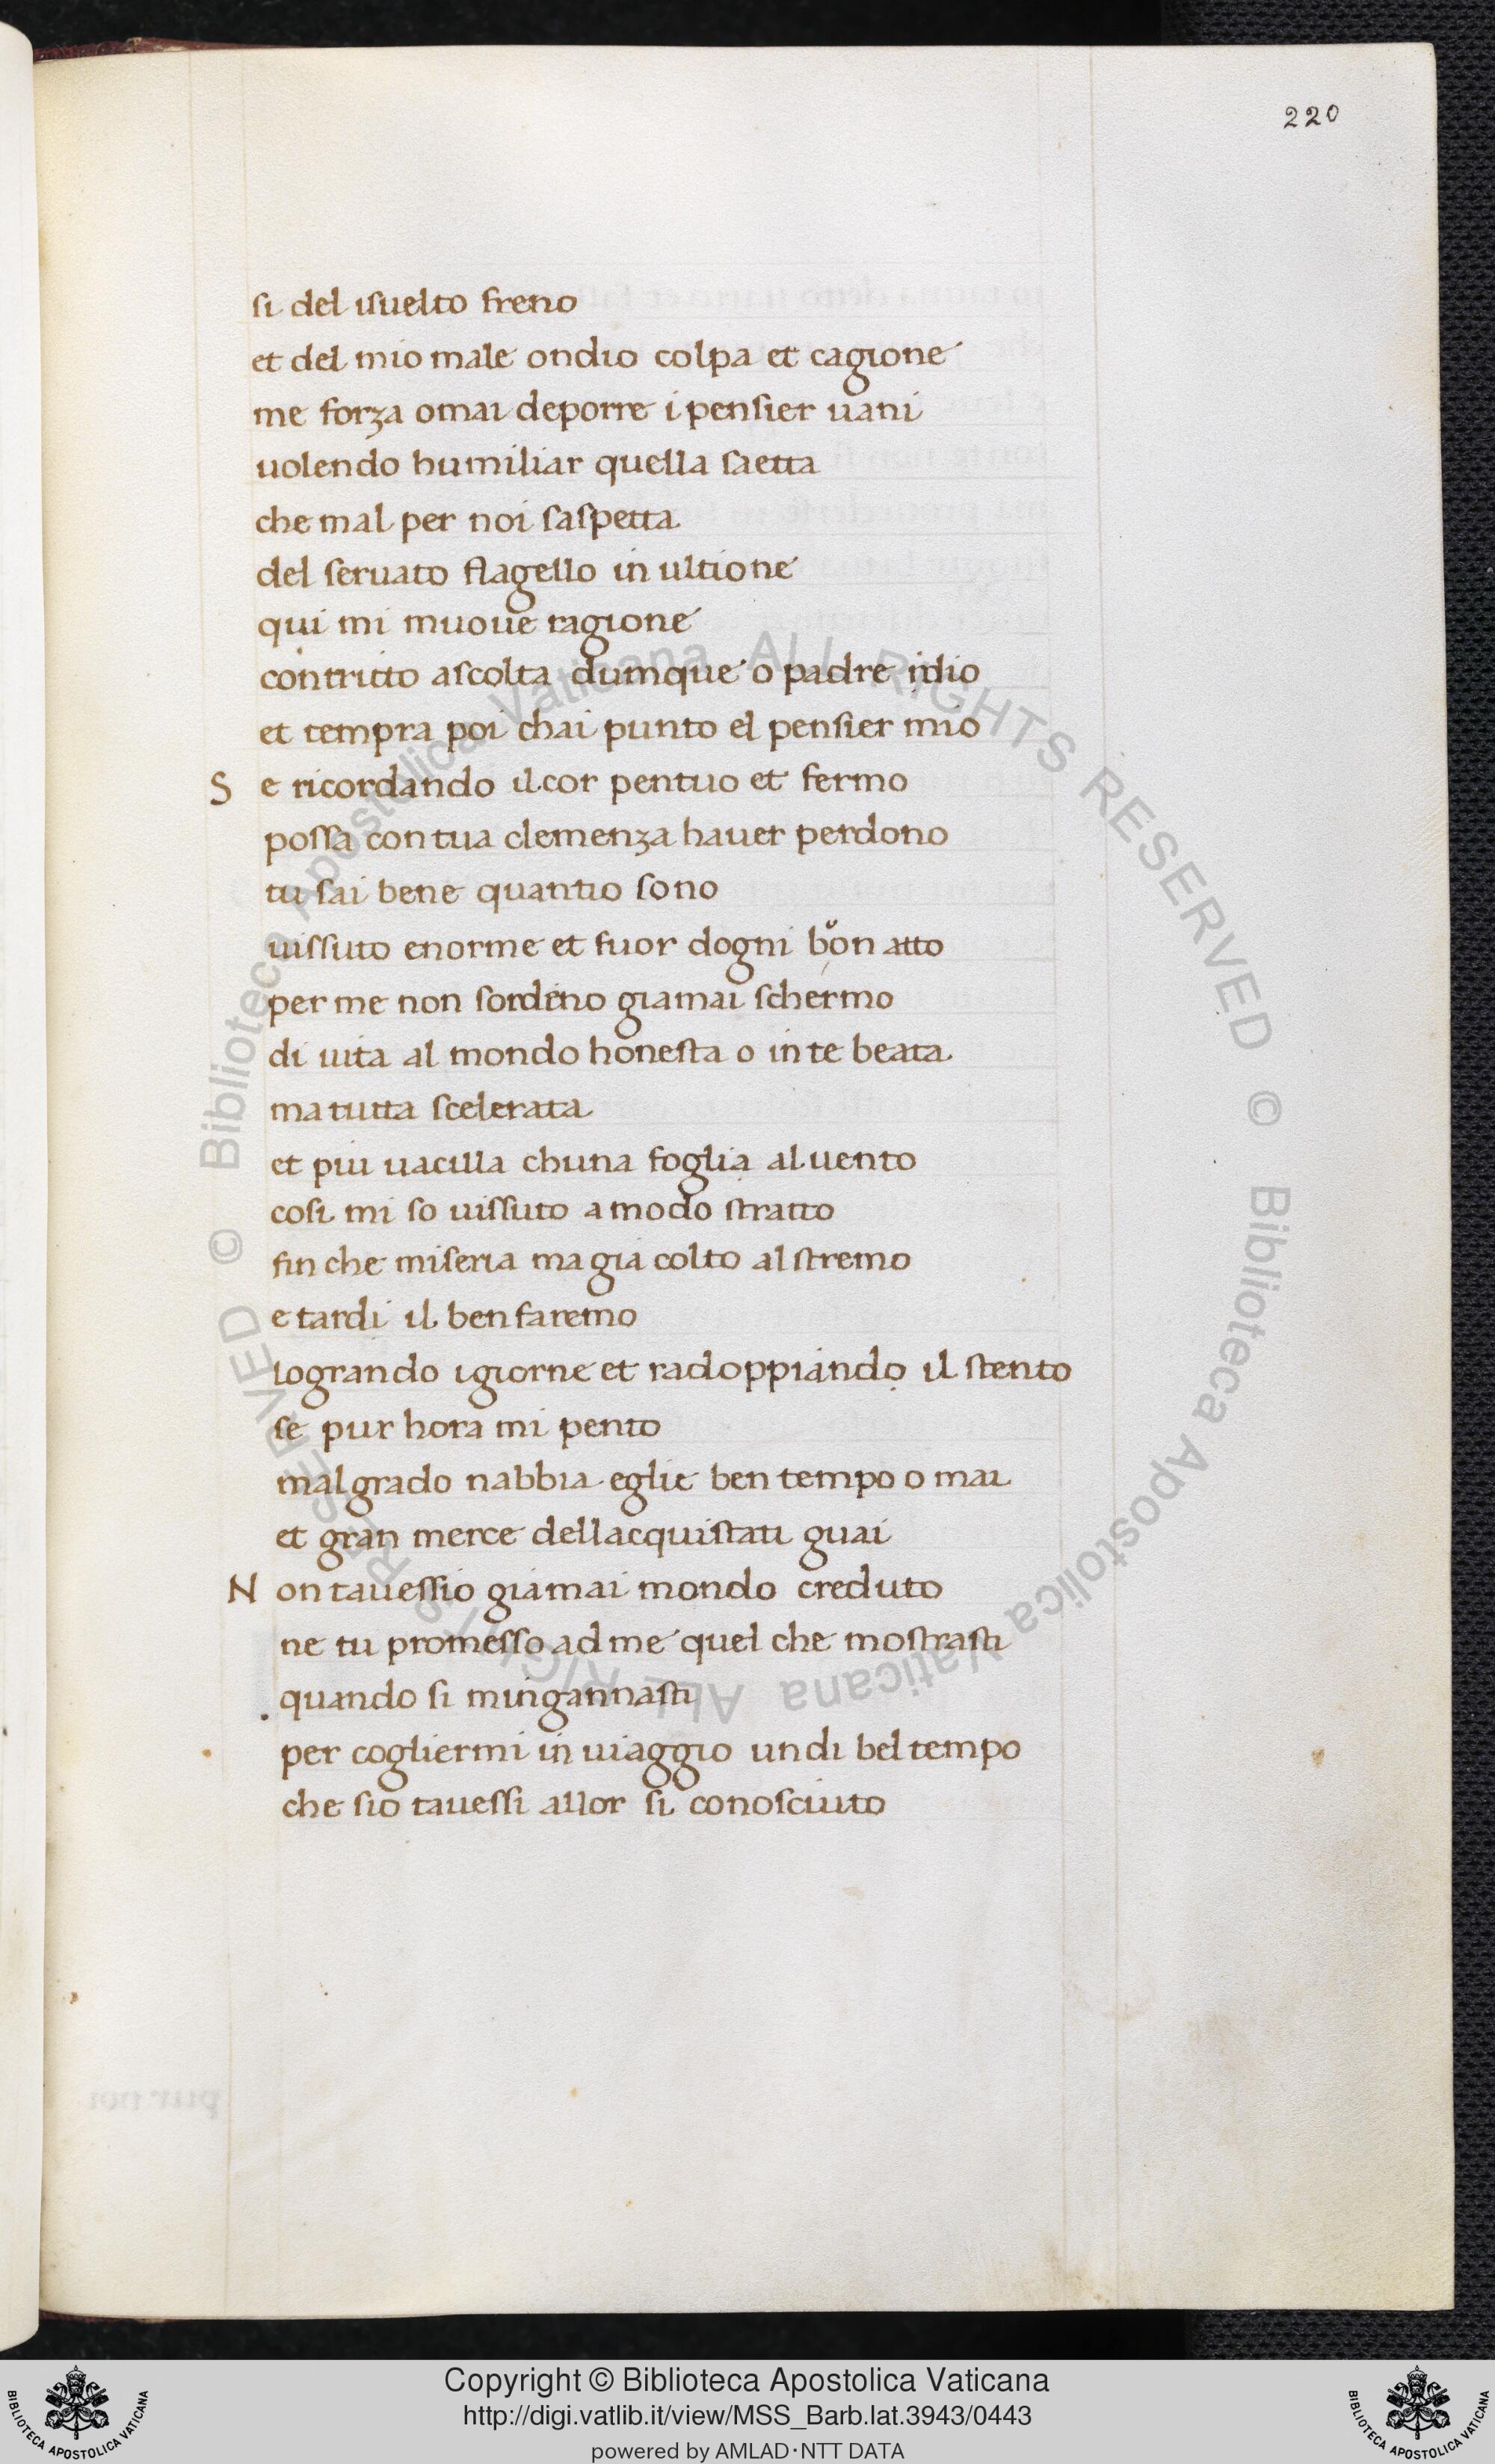 220
si del isuelto freno
et del mio male ondio colpa et cagione
me forza omai deporre i pensier uani
uolendo humiliar quella saetta
che mal per noi saspetta
del seruato flagello in ultione
qui mi muoue ragione
contritto ascolta dumque o padre idio
et tempra poi chai punto el pensier mio
S e ricordando il cor pentuo et fermo
possa con tua clemenza hauer perdono
tu sai bene quantio sono
uissuto enorme et fuor dogni bon atto
per me non sordeno giamai schermo
di uita al mondo honesta o in te beata
ma tutta scelerata
et piu uacilla chuna foglia al uento
cosi mi so uissuto a modo stratto
fin che miseria ma gia colto al stremo
e tardi il ben faremo
logrando i giorne et radoppiando il stento
se pur hora mi pento
mal grado nabbia eglie ben tempo o mai
et gran merce dellacquistati guai
N on tauessio giamai mondo creduto
ne tu promesso ad me quel che mostrasti
quando si mingannasti
per cogliermi in uiaggio un di bel tempo
che sio tauessi allor si conosciuto
pur noi
© Biblioteca Apostolica Vaticana ALL RIGHTS RESERVED © Biblioteca Apostolica Vaticana ALL RIGHTS RESERVED
BIBLIOTECA APOSTOLICA VATICANA
Copyright © Biblioteca Apostolica Vaticana
http://digi.vatlib.it/view/MSS_Barb.lat.3943/0443
powered by AMLAD·NTT DATA
BIBLIOTECA APOSTOLICA VATICANA